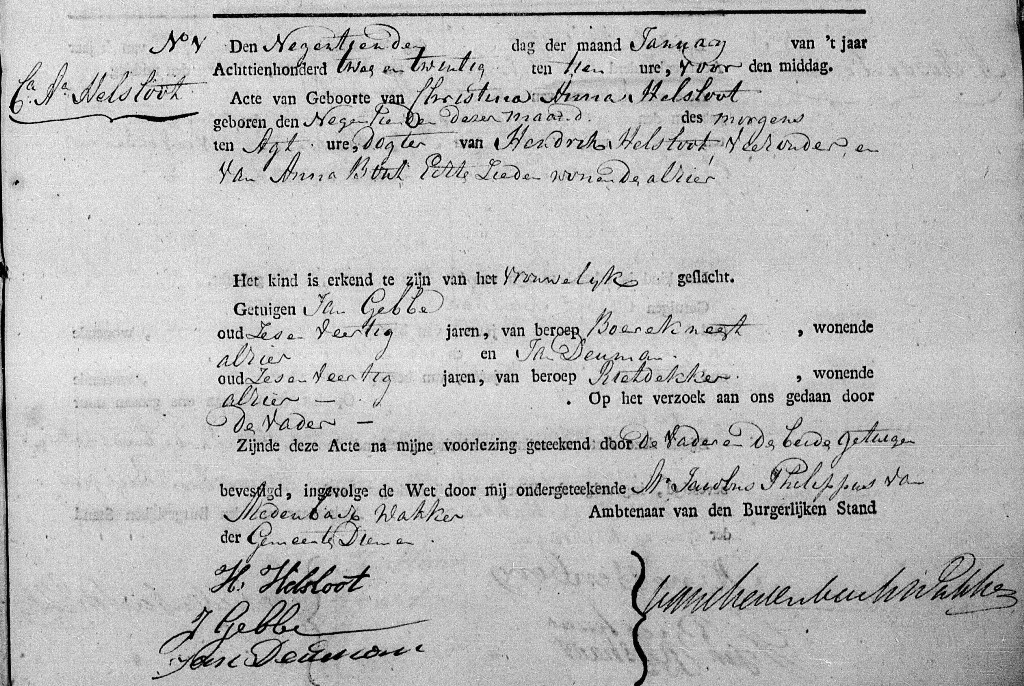 No V Den Negentienden dag der maand January van 't jaar
Achttienhonderd twee en twintig ten tien ure, voor den middag.
Ca. Aa. Helsloot
Acte van Geboorte van Christina Anna Helsloot
geboren den Negentienden dezer maand des morgens
ten Agt ure, dogter van Hendrik Helsloot, Veehouder, en
van Anna Bont Egte Lieden wonende alhier
Het kind is erkend te zijn van het vrouwelyk geslacht.
Getuigen Jan Gebbe
oud Zes en Veertig jaren, van beroep Boereknegt, wonende
alhier en Jan Deuman.
oud Zes en Veertig jaren, van beroep Rietdekker, wonende
alhier — . Op het verzoek aan ons gedaan door
de Vader —
Zijnde deze Acte na mijne voorlezing geteekend door de Vader en de beide getuigen
bevestigd, ingevolge de Wet door mij ondergeteekende Mr. Jacobus Philippus van
Medenbach Wakker Ambtenaar van den Burgerlijken Stand
der Gemeente Diemen.
H. Helsloot
J Gebbe
Jan Deuman
van Medenbach Wakker